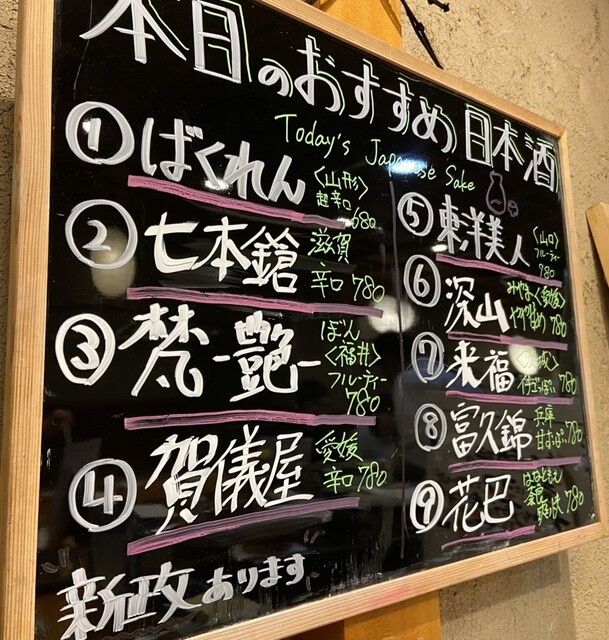 本日のおすすめ日本酒
Today's Japanese Sake
① ばくれん
〈山形〉
超辛口
680
② 七本鎗
滋賀
辛口 780
③ 梵-艶-
ぼん
〈福井〉
フルーティー
780
④ 賀儀屋
愛媛
辛口 780
新政あります
⑤ 東洋美人
〈山口〉
フルーティー
780
⑥ 深山
みやま〈愛媛〉
780
⑦ 来福
780
⑧ 富久錦
兵庫
780
⑨ 花巴
はなともえ
奈良
780